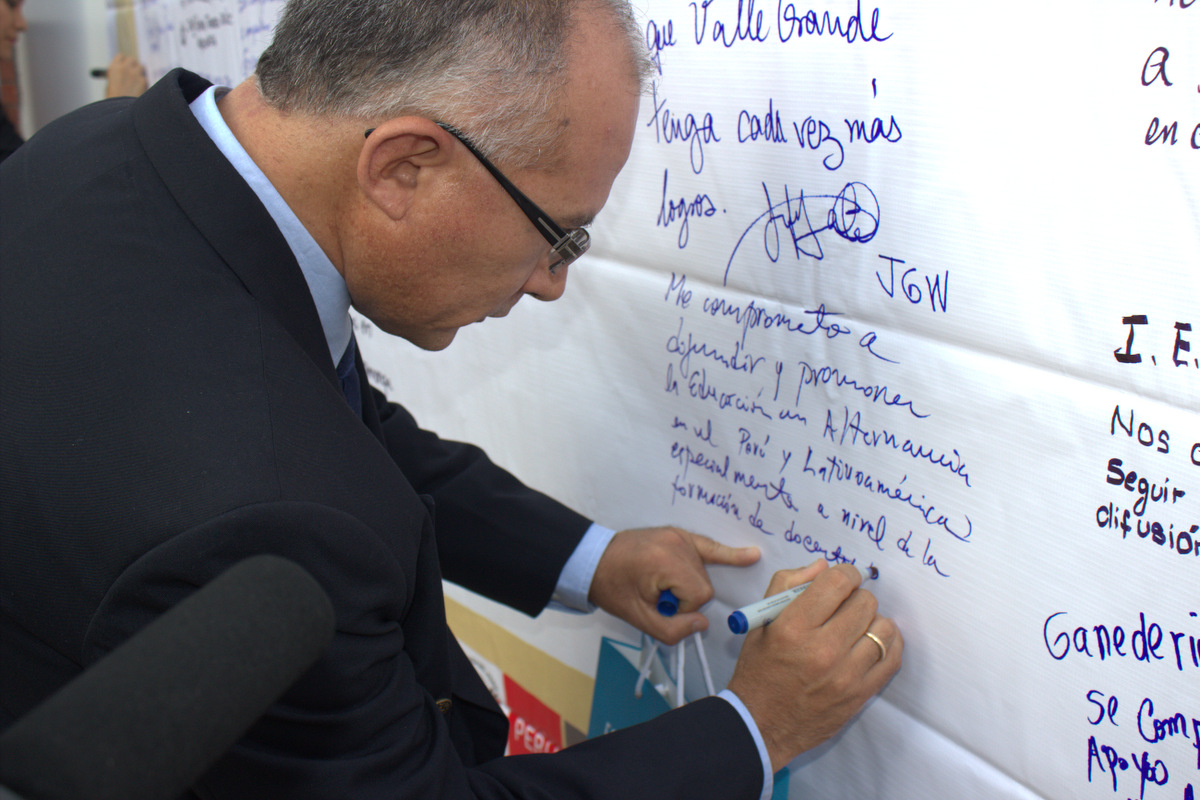 que Valle Grande
tenga cada vez más
logros.
JGW
Me comprometo a
difundir y promover
la Educación en Alternancia
en el Perú y Latinoamérica
especialmente a nivel de la
formación de docentes
a
en
I. E.
Nos
seguir
difusión
Ganaderi
se Comp
Apoyo
PERU